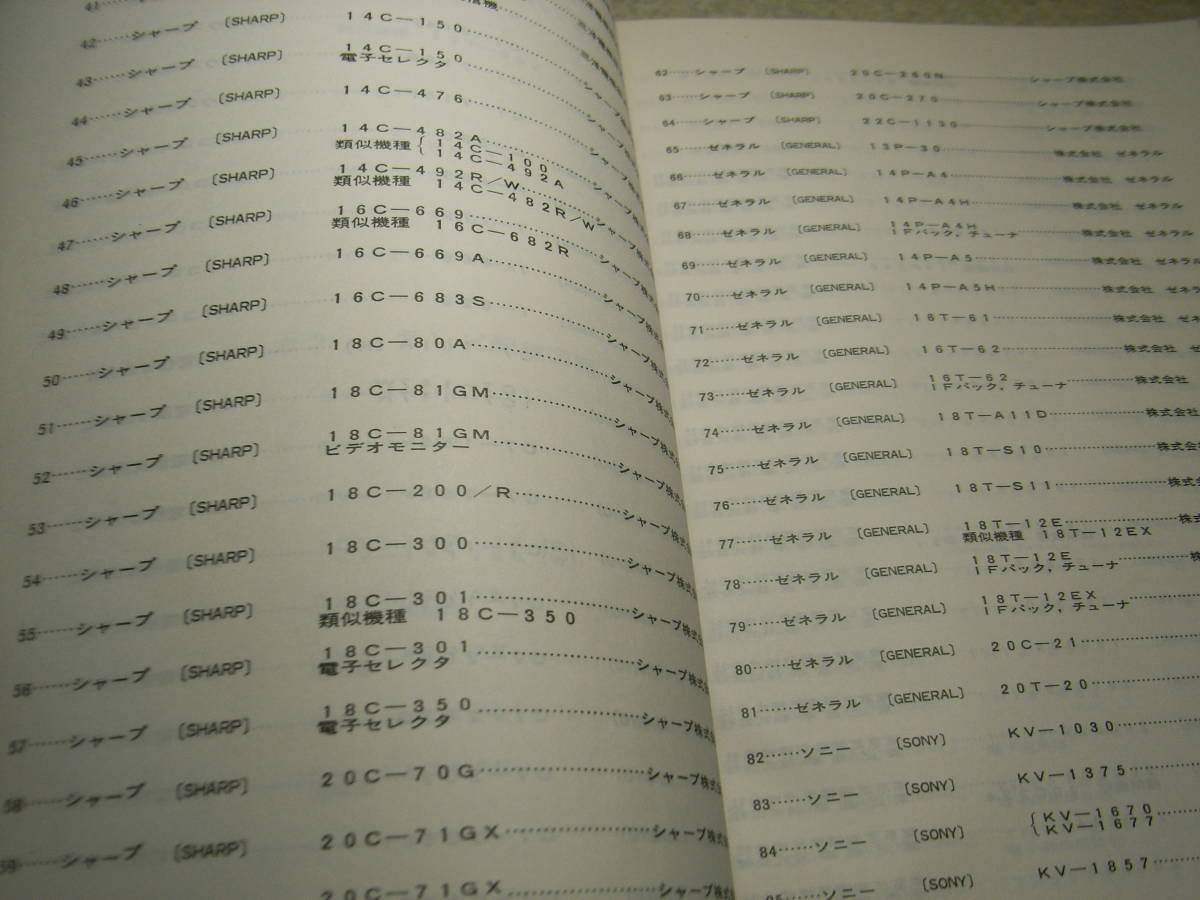 41……
42……シャープ 〔SHARP〕 14C―150
43……シャープ 〔SHARP〕 14C―150
電子セレクタ
44……シャープ 〔SHARP〕 14C―476
45……シャープ 〔SHARP〕 14C―482A
類似機種 {14C―100
14C―492A
46……シャープ 〔SHARP〕 14C―492R/W
類似機種 14C―482R/W
47……シャープ 〔SHARP〕 16C―669
類似機種 16C―682R
48……シャープ 〔SHARP〕 16C―669A
49……シャープ 〔SHARP〕 16C―683S
50……シャープ 〔SHARP〕 18C―80A
51……シャープ 〔SHARP〕 18C―81GM
52……シャープ 〔SHARP〕 18C―81GM
ビデオモニター
53……シャープ 〔SHARP〕 18C―200/R……シャープ株式
54……シャープ 〔SHARP〕 18C―300……シャープ株式
55……シャープ 〔SHARP〕 18C―301……シャープ株式
類似機種 18C―350
56……シャープ 〔SHARP〕 18C―301……シャープ株式
電子セレクタ
57……シャープ 〔SHARP〕 18C―350……シャープ株式
電子セレクタ
58……シャープ 〔SHARP〕 20C―70G……シャープ株式
59……シャープ 〔SHARP〕 20C―71GX……シャープ株式
20C―71GX……シャープ株式
62……シャープ 〔SHARP〕 20C―260N……シャープ株式会社
63……シャープ 〔SHARP〕 20C―270……シャープ株式会社
64……シャープ 〔SHARP〕 22C―1130……シャープ株式会社
65……ゼネラル 〔GENERAL〕 13P―30……株式会社 ゼネラル
66……ゼネラル 〔GENERAL〕 14P―A4……株式会社 ゼネラル
67……ゼネラル 〔GENERAL〕 14P―A4H……株式会社 ゼネラル
68……ゼネラル 〔GENERAL〕 14P―A4H……株式会社 ゼネラル
IFパック，チューナ
69……ゼネラル 〔GENERAL〕 14P―A5……株式会社 ゼネラル
70……ゼネラル 〔GENERAL〕 14P―A5H……株式会社 ゼネラル
71……ゼネラル 〔GENERAL〕 16T―61……株式会社 ゼネ
72……ゼネラル 〔GENERAL〕 16T―62……株式会社 ゼ
73……ゼネラル 〔GENERAL〕 16T―62……株式会社
IFパック，チューナ
74……ゼネラル 〔GENERAL〕 18T―A11D……株式会社
75……ゼネラル 〔GENERAL〕 18T―S10……株式会
76……ゼネラル 〔GENERAL〕 18T―S11……株式会
77……ゼネラル 〔GENERAL〕 18T―12E……株式
類似機種 18T―12EX
78……ゼネラル 〔GENERAL〕 18T―12E……株
IFパック，チューナ
79……ゼネラル 〔GENERAL〕 18T―12EX
IFパック，チューナ
80……ゼネラル 〔GENERAL〕 20C―21
81……ゼネラル 〔GENERAL〕 20T―20
82……ソニー 〔SONY〕 KV―1030
83……ソニー 〔SONY〕 KV―1375
84……ソニー 〔SONY〕 {KV―1670
KV―1677
85……ソニー 〔SONY〕 KV―1857